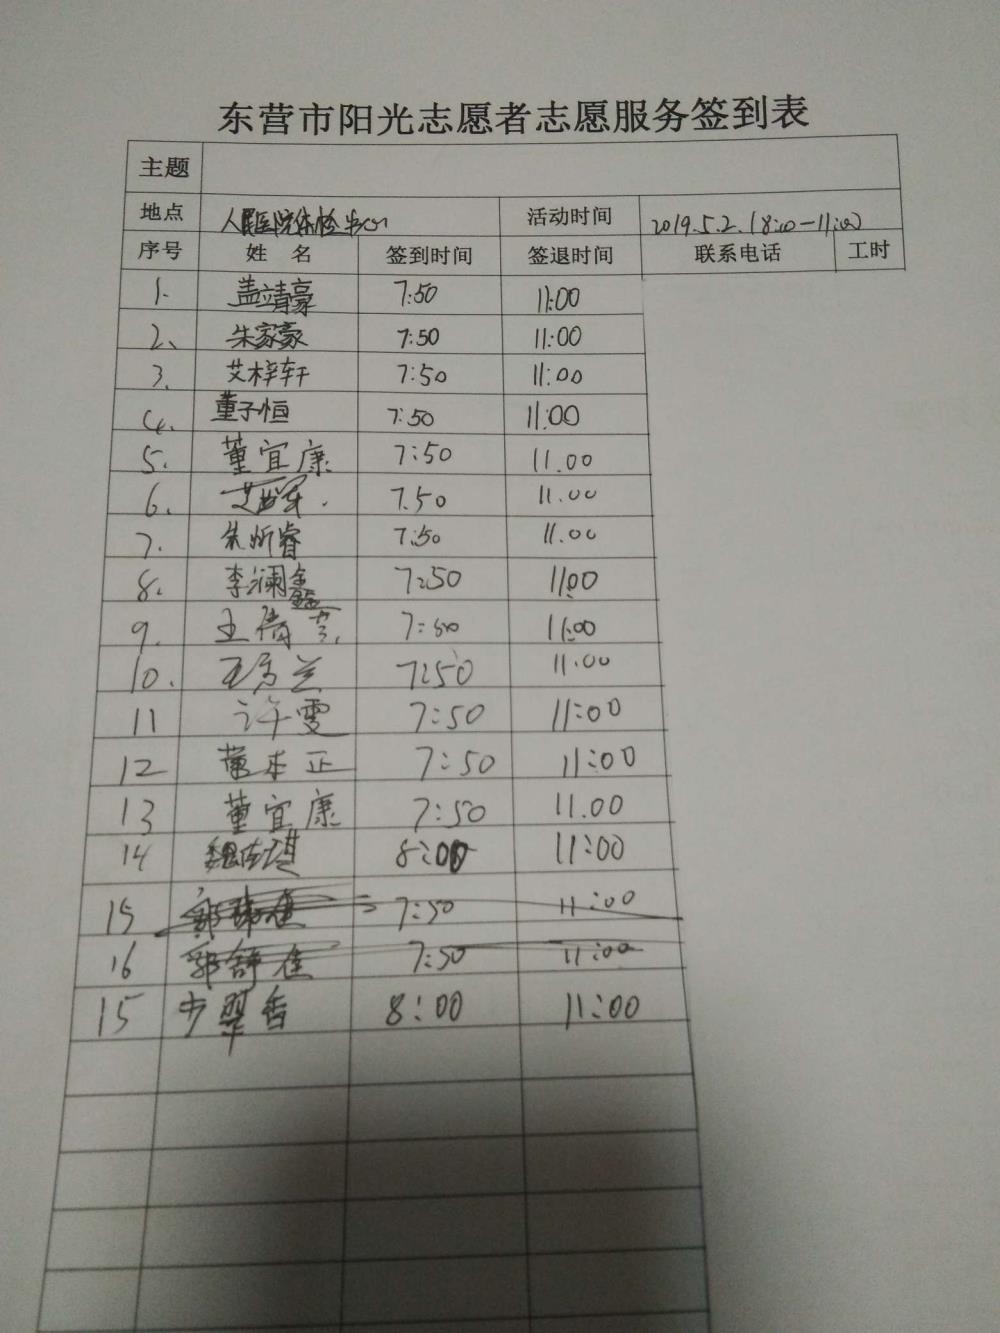 东营市阳光志愿者志愿服务签到表
主题
地点 人民医院体检中心 活动时间 2019.5.2.(8:00-11:00)
序号 姓名 签到时间 签退时间 联系电话 工时
1. 盖靖豪 7:50 11:00
2、 朱家豪 7:50 11:00
3. 艾梓轩 7:50 11:00
4. 董子恒 7:50 11:00
5. 董宜康 7:50 11.00
6. 7.50 11.00
7. 朱昕睿 7:50 11.00
8. 李澜鑫 7:50 11:00
9. 王倩 7:50 11:00
10. 王芳兰 7:50 11:00
11 许雯 7:50 11:00
12 董本正 7:50 11:00
13 董宜康 7:50 11.00
14 8:00 11:00
15 7:50 11:00
16 郭舒佳 7:50 11:00
15 步翠香 8:00 11:00